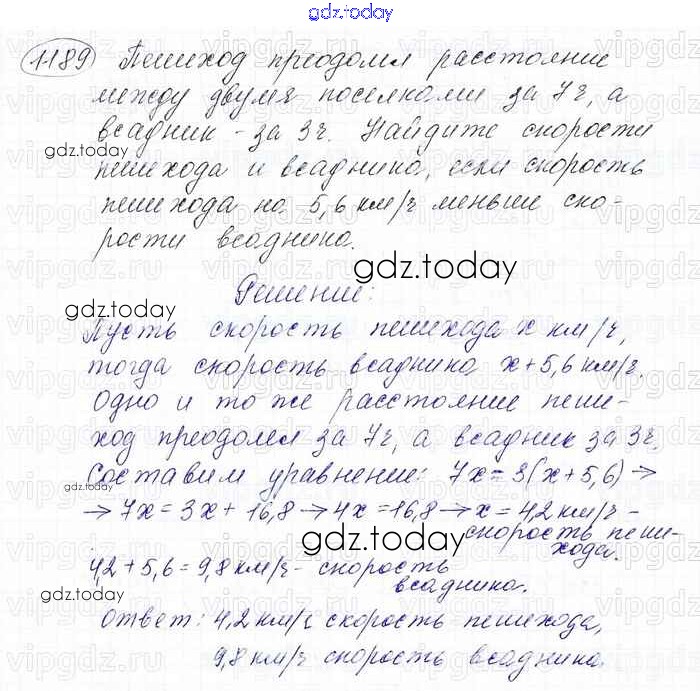 gdz.today
1189 Пешеход преодолел расстояние
между двумя поселками за 7 ч, а
всадник - за 3 ч. Найдите скорости
gdz.today
пешехода и всадника, если скорость
пешехода на 5,6 км/ч меньше ско-
рости всадника.
gdz.today
Решение:
gdz.today
Пусть скорость пешехода х км/ч,
тогда скорость всадника х+5,6 км/ч.
Одно и то же расстояние пеше-
ход преодолел за 7 ч, а всадник за 3 ч.
Составим уравнение: 7х = 3(х+5,6) →
gdz.today
→ 7х = 3х + 16,8 → 4х = 16,8 → х = 4,2 км/ч -
скорость пеше-
хода.
gdz.today
4,2 + 5,6 = 9,8 км/ч - скорость
всадника.
gdz.today
Ответ: 4,2 км/ч скорость пешехода,
9,8 км/ч скорость всадника.
gdz.today